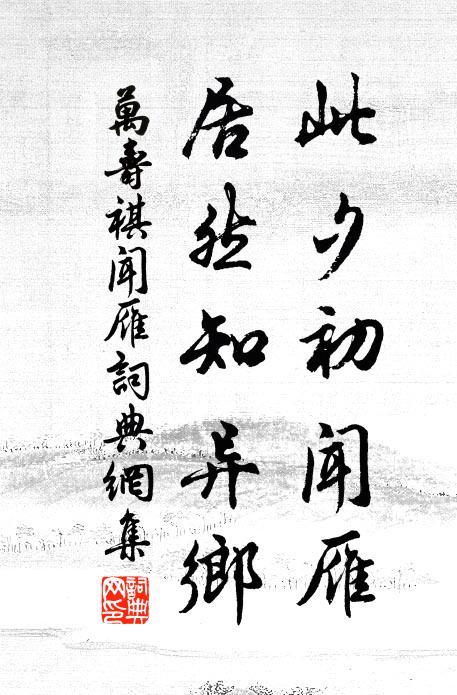 此夕初闻雁
居然知异鄉
萬壽祺闻雁詞典網集
詞典